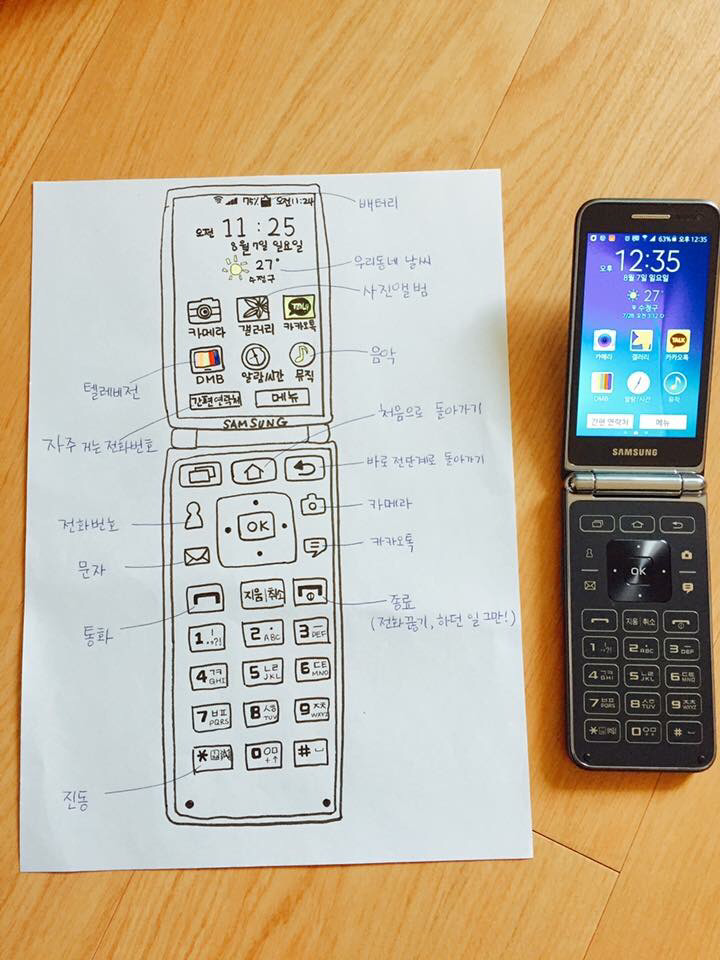 75% 오전 11:24
배터리
오전 11:25
8월 7일 일요일
27°
수정구
우리동네 날씨
사진앨범
카메라 갤러리 카카오톡
TALK
DMB 알람/시간 뮤직
음악
텔레비전
간편 연락처 메뉴
자주 거는 전화번호
SAMSUNG
처음으로 돌아가기
바로 전단계로 돌아가기
OK
카메라
전화번호
카카오톡
문자
지움|취소
통화
종료
(전화 끊기, 하던 일 그만!)
1 .,?! 2 ABC 3 DEF
4 ㄱㅋ GHI 5 ㄴㄹ JKL 6 ㄷㅌ MNO
7 ㅂㅍ PQRS 8 ㅅㅎ TUV 9 ㅈㅊ WXYZ
* 0 ㅇㅁ + #
진동
63% 오후 12:35
오후 12:35
8월 7일 일요일
27°
수정구
7/28 오후 3:12
카메라 갤러리 카카오톡
TALK
DMB 알람/시간 뮤직
간편 연락처 메뉴
SAMSUNG
OK
지움|취소
1 .,?! 2 ABC 3 DEF
4 ㄱㅋ GHI 5 ㄴㄹ JKL 6 ㄷㅌ MNO
7 ㅂㅍ PQRS 8 ㅅㅎ TUV 9 ㅈㅊ WXYZ
* 0 ㅇㅁ + #